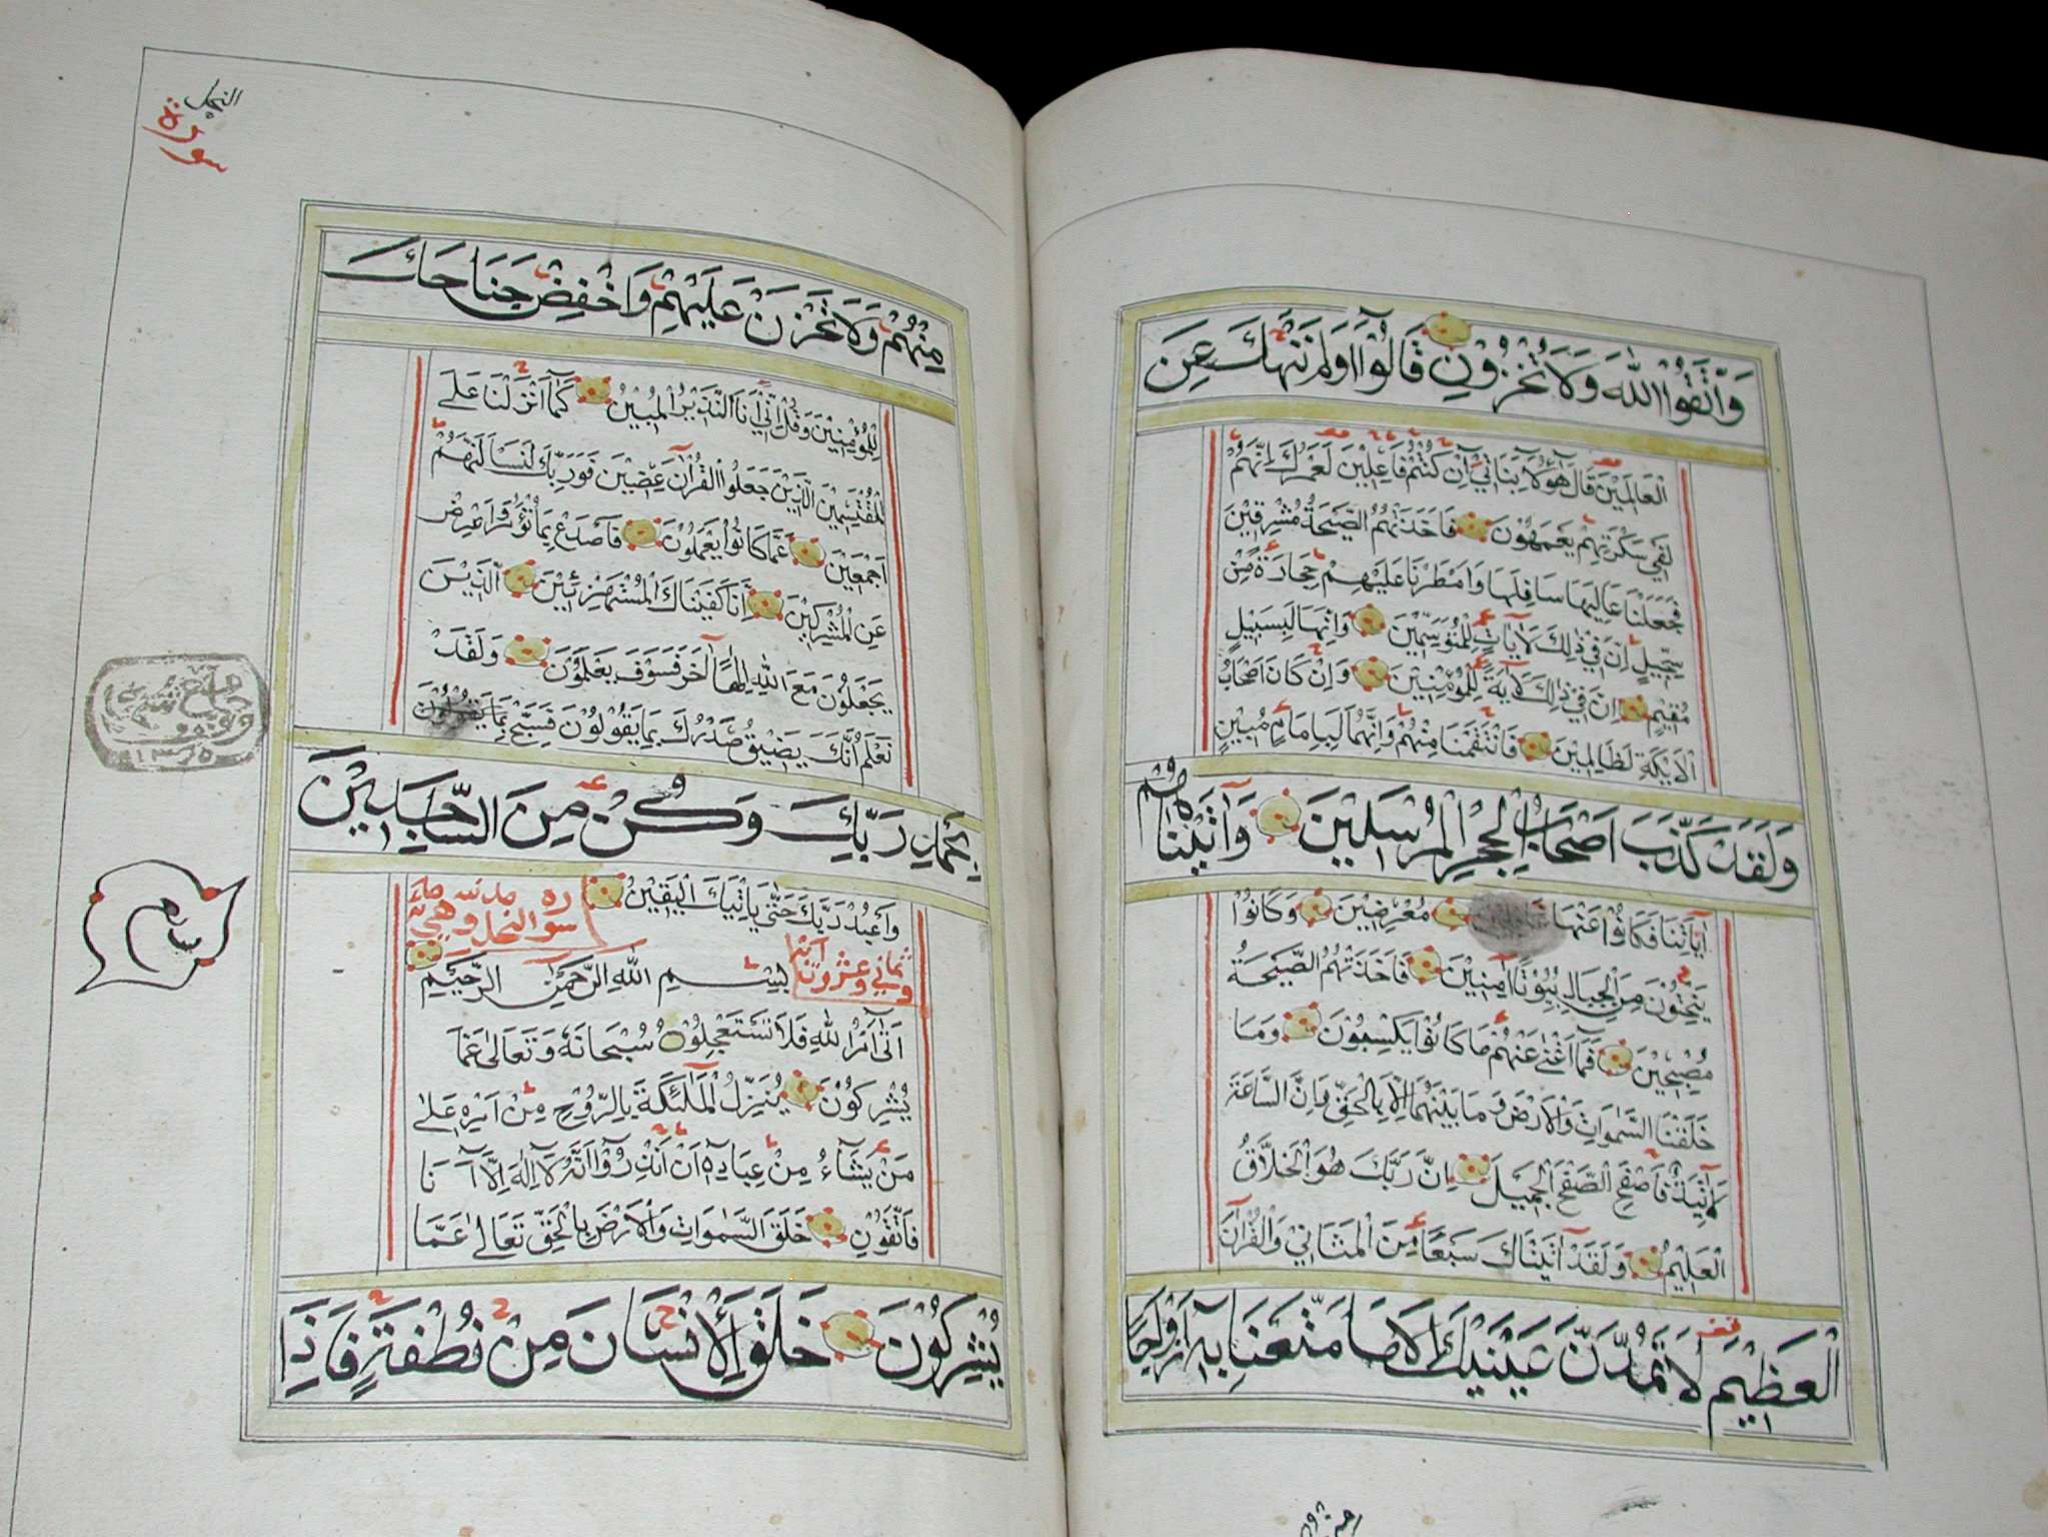 وَاتَّقُوا اللهَ وَلَا تُخْزُونِ قَالُوا اَوَلَمْ نَنْهَكَ عَنِ
الْعَالَمِينَ قَالَ هٰؤُلَاءِ بَنَاتِي اِنْ كُنْتُمْ فَاعِلِينَ لَعَمْرُكَ اِنَّهُمْ
لَفِي سَكْرَتِهِمْ يَعْمَهُونَ فَاَخَذَتْهُمُ الصَّيْحَةُ مُشْرِقِينَ
فَجَعَلْنَا عَالِيَهَا سَافِلَهَا وَاَمْطَرْنَا عَلَيْهِمْ حِجَارَةً مِنْ
سِجِّيلٍ اِنَّ فِي ذٰلِكَ لَاٰيَاتٍ لِلْمُتَوَسِّمِينَ وَاِنَّهَا لَبِسَبِيلٍ
مُقِيمٍ اِنَّ فِي ذٰلِكَ لَاٰيَةً لِلْمُؤْمِنِينَ وَاِنْ كَانَ اَصْحَابُ
الْاَيْكَةِ لَظَالِمِينَ فَانْتَقَمْنَا مِنْهُمْ وَاِنَّهُمَا لَبِاِمَامٍ مُبِينٍ
وَلَقَدْ كَذَّبَ اَصْحَابُ الْحِجْرِ الْمُرْسَلِينَ وَاٰتَيْنَاهُمْ
اٰيَاتِنَا فَكَانُوا عَنْهَا مُعْرِضِينَ وَكَانُوا
يَنْحِتُونَ مِنَ الْجِبَالِ بُيُوتًا اٰمِنِينَ فَاَخَذَتْهُمُ الصَّيْحَةُ
مُصْبِحِينَ فَمَا اَغْنٰى عَنْهُمْ مَا كَانُوا يَكْسِبُونَ وَمَا
خَلَقْنَا السَّمٰوَاتِ وَالْاَرْضَ وَمَا بَيْنَهُمَا اِلَّا بِالْحَقِّ وَاِنَّ السَّاعَةَ
لَاٰتِيَةٌ فَاصْفَحِ الصَّفْحَ الْجَمِيلَ اِنَّ رَبَّكَ هُوَ الْخَلَّاقُ
الْعَلِيمُ وَلَقَدْ اٰتَيْنَاكَ سَبْعًا مِنَ الْمَثَانِي وَالْقُرْاٰنَ
الْعَظِيمَ لَا تَمُدَّنَّ عَيْنَيْكَ اِلَى مَا مَتَّعْنَا بِهِ اَزْوَاجًا
النحل
سورة
مِنْهُمْ وَلَا تَحْزَنْ عَلَيْهِمْ وَاخْفِضْ جَنَاحَكَ
لِلْمُؤْمِنِينَ وَقُلْ اِنِّي اَنَا النَّذِيرُ الْمُبِينُ كَمَا اَنْزَلْنَا عَلَى
الْمُقْتَسِمِينَ الَّذِينَ جَعَلُوا الْقُرْاٰنَ عِضِينَ فَوَرَبِّكَ لَنَسْاَلَنَّهُمْ
اَجْمَعِينَ عَمَّا كَانُوا يَعْمَلُونَ فَاصْدَعْ بِمَا تُؤْمَرُ وَاَعْرِضْ
عَنِ الْمُشْرِكِينَ اِنَّا كَفَيْنَاكَ الْمُسْتَهْزِئِينَ الَّذِينَ
يَجْعَلُونَ مَعَ اللهِ اِلٰهًا اٰخَرَ فَسَوْفَ يَعْلَمُونَ وَلَقَدْ
نَعْلَمُ اَنَّكَ يَضِيقُ صَدْرُكَ بِمَا يَقُولُونَ فَسَبِّحْ بِمَا يَقُولُونَ
بِحَمْدِ رَبِّكَ وَكُنْ مِنَ السَّاجِدِينَ
وَاعْبُدْ رَبَّكَ حَتّٰى يَاْتِيَكَ الْيَقِينُ
سورة النحل وهي مائة
وثماني وعشرون اية
بِسْمِ اللهِ الرَّحْمٰنِ الرَّحِيمِ
اَتٰى اَمْرُ اللهِ فَلَا تَسْتَعْجِلُوهُ سُبْحَانَهُ وَتَعَالٰى عَمَّا
يُشْرِكُونَ يُنَزِّلُ الْمَلٰئِكَةَ بِالرُّوحِ مِنْ اَمْرِهِ عَلٰى
مَنْ يَشَاءُ مِنْ عِبَادِهِ اَنْ اَنْذِرُوا اَنَّهُ لَا اِلٰهَ اِلَّا اَنَا
فَاتَّقُونِ خَلَقَ السَّمٰوَاتِ وَالْاَرْضَ بِالْحَقِّ تَعَالٰى عَمَّا
يُشْرِكُونَ خَلَقَ الْاِنْسَانَ مِنْ نُطْفَةٍ فَاِذَا